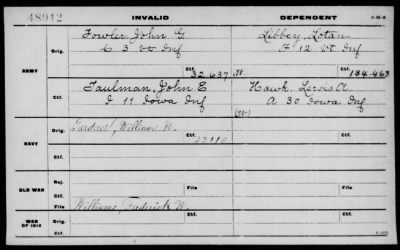 48912
INVALID
DEPENDENT
3-88-B
Fowler, John G
Libbey, Lotan
Orig. C 3 Vt Inf
F 12 Vt Inf
Ctf. 32.637
Ctf. 184.463
ARMY
Taulman, John E
Hawk, Lewis A.
Ctf. I 11 Iowa Inf
A 30 Iowa Inf
Gardner, William H.
Orig. Ctf. 23110
Ctf.
NAVY
Ctf.
Rej.
OLD WAR
File
File
Ctf.
Williams, Frederick W.
WAR OF 1812
Orig.
Ctf.
Ctf.